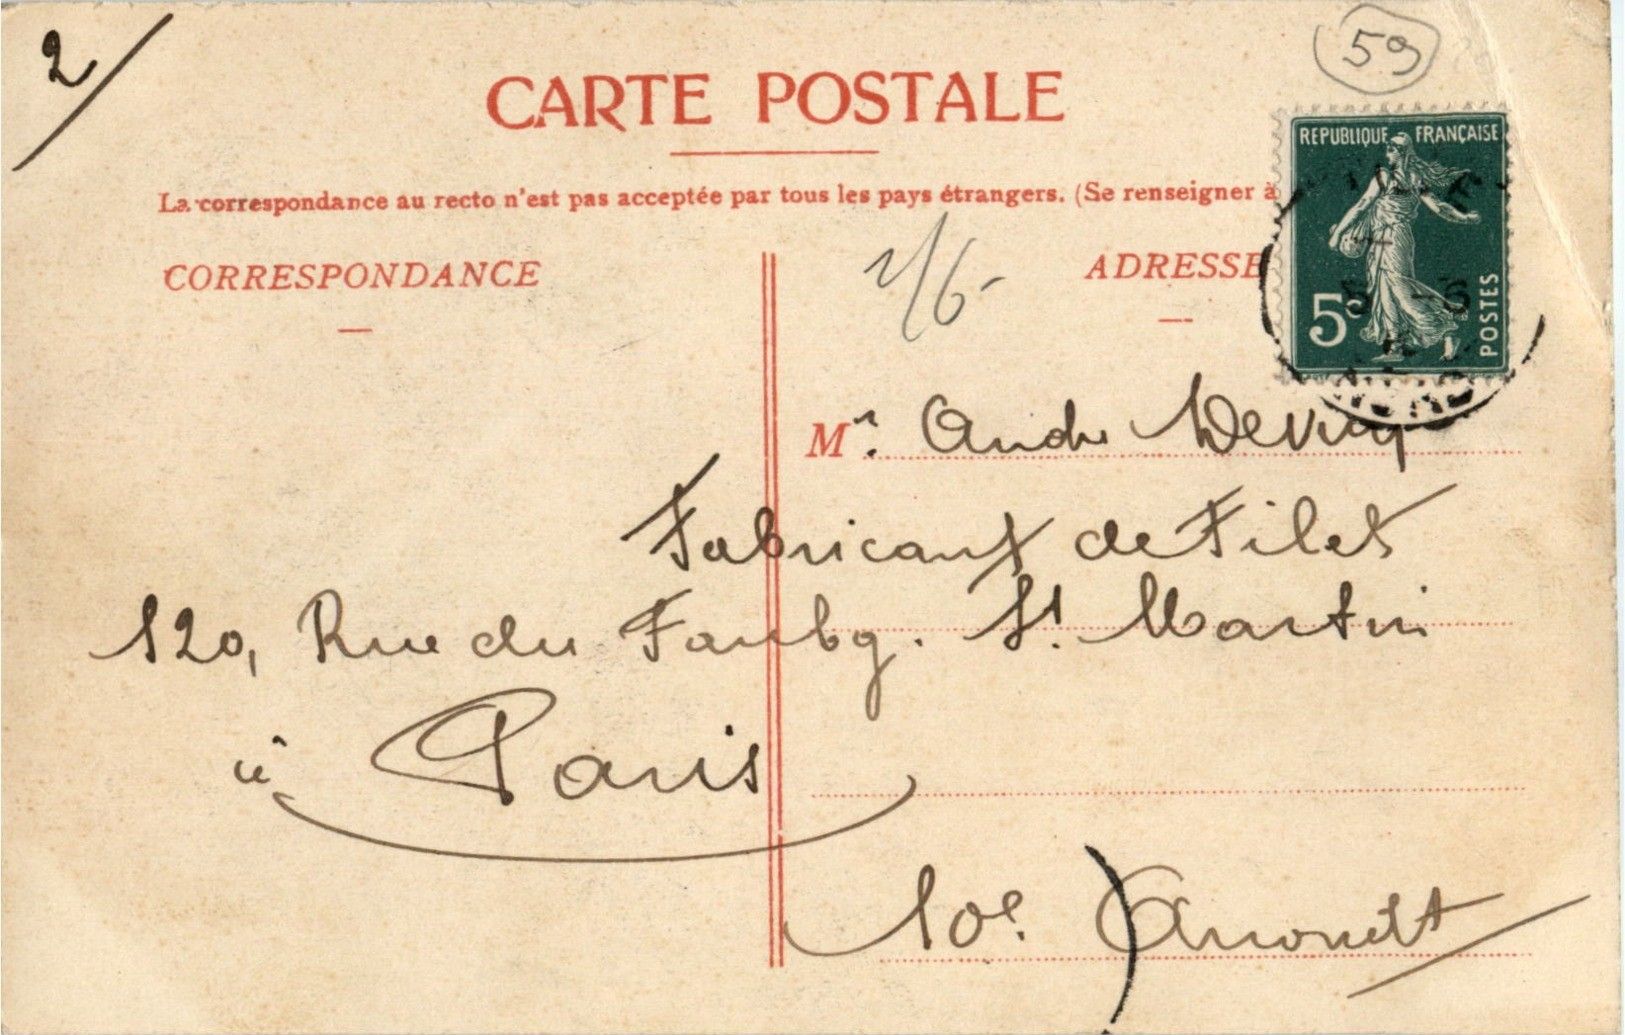 2/
59
CARTE POSTALE
REPUBLIQUE FRANÇAISE
La correspondance au recto n'est pas acceptée par tous les pays étrangers. (Se renseigner à
CORRESPONDANCE
2/6-
ADRESSE
5c
POSTES
5 -6
Mr. André
Fabricant de Filet
120, Rue du Faubg. St. Martin
à Paris
10e.